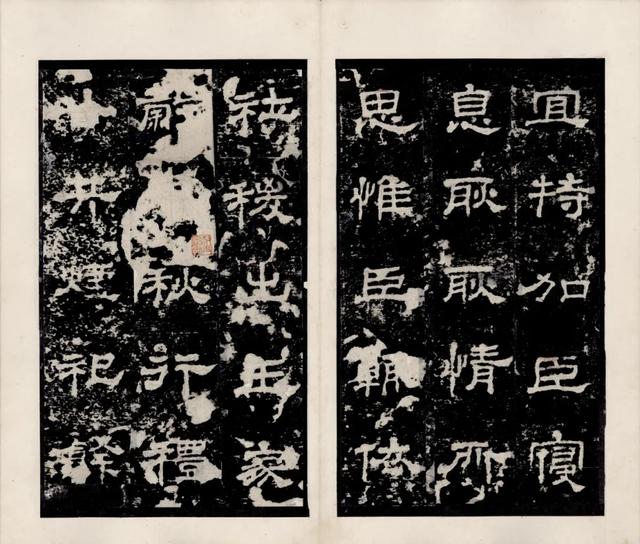 宜特加臣寑
息耿耿情所
思惟臣輒依
社稷出王家
穀秋行禮
以共煙祀